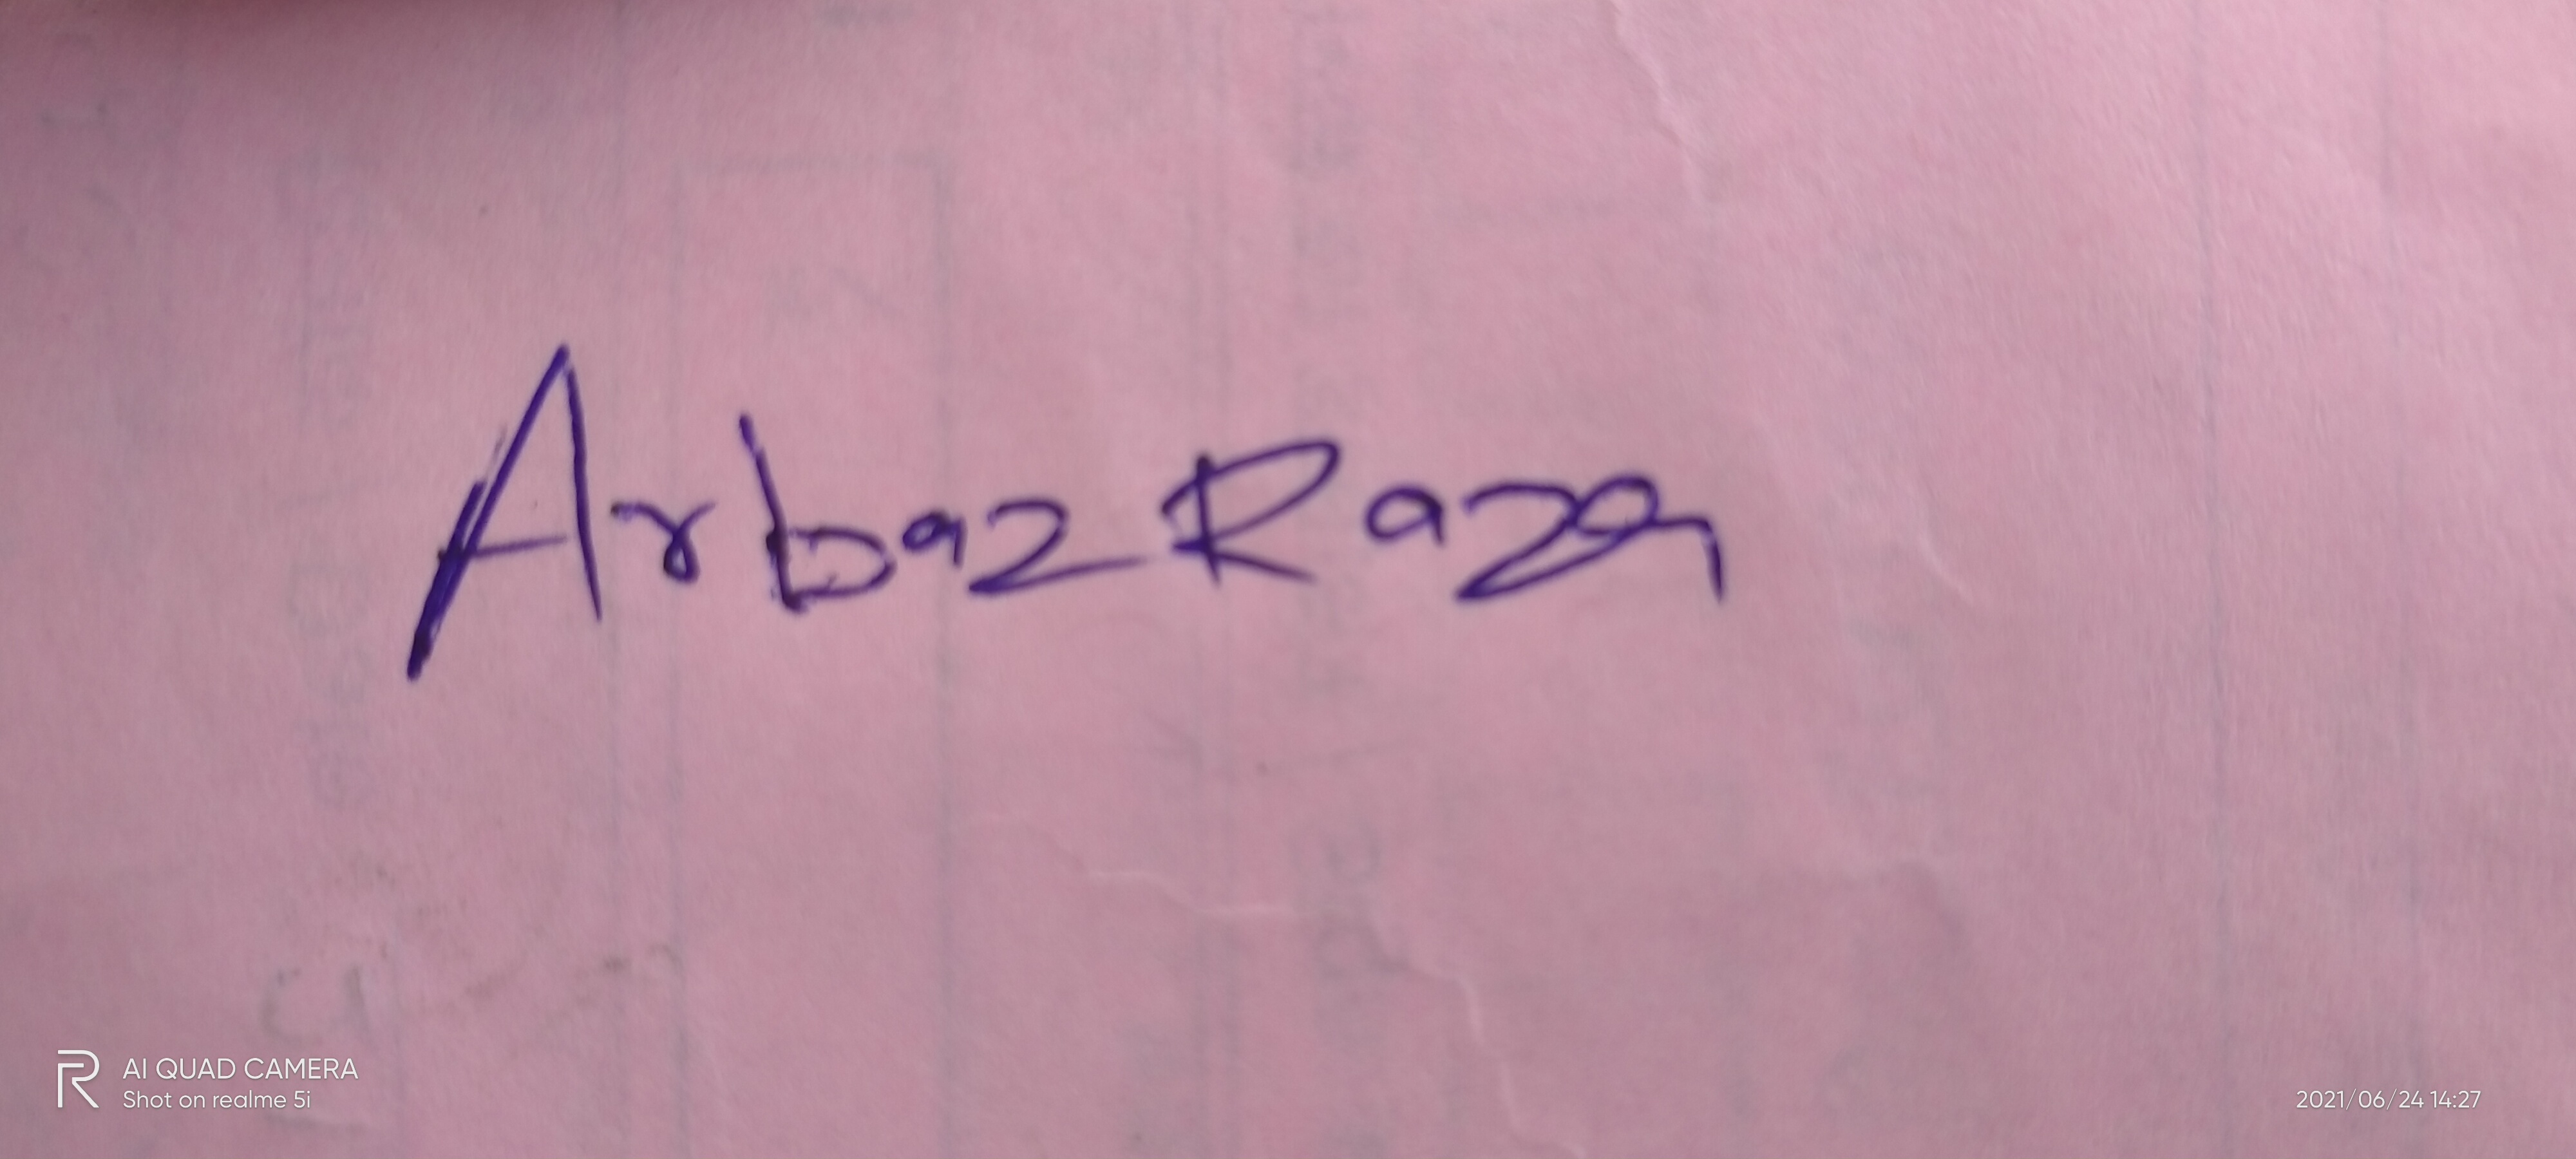 Arbaz Raza
AI QUAD CAMERA
Shot on realme 5i
2021/06/24 14:27